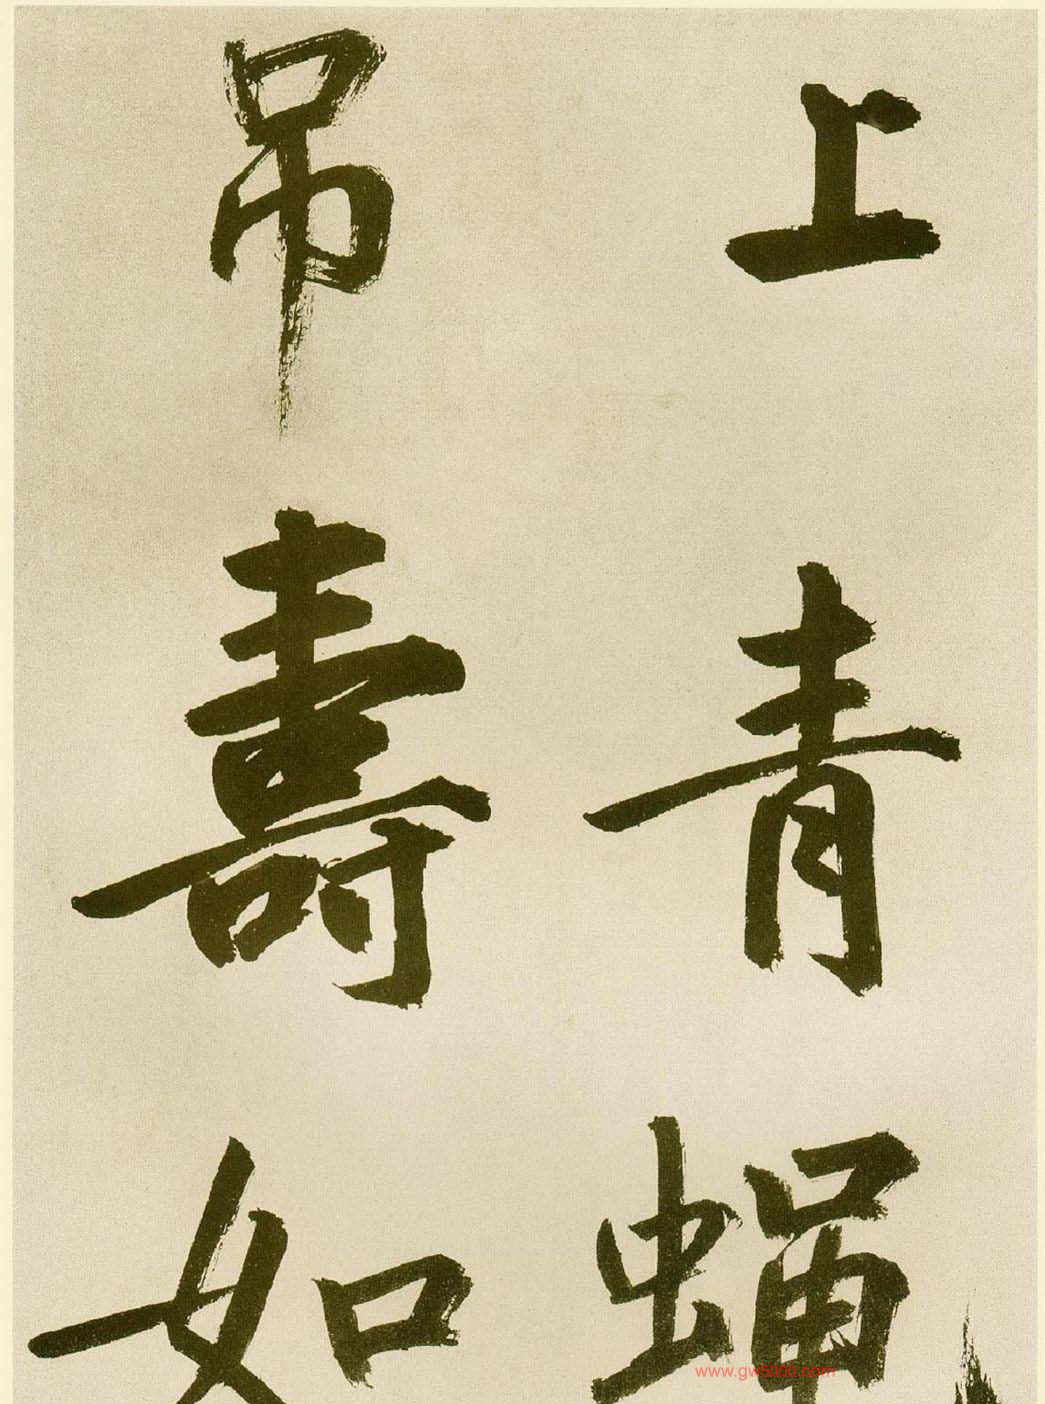 上青蝇
吊壽如
www.gw5000.com